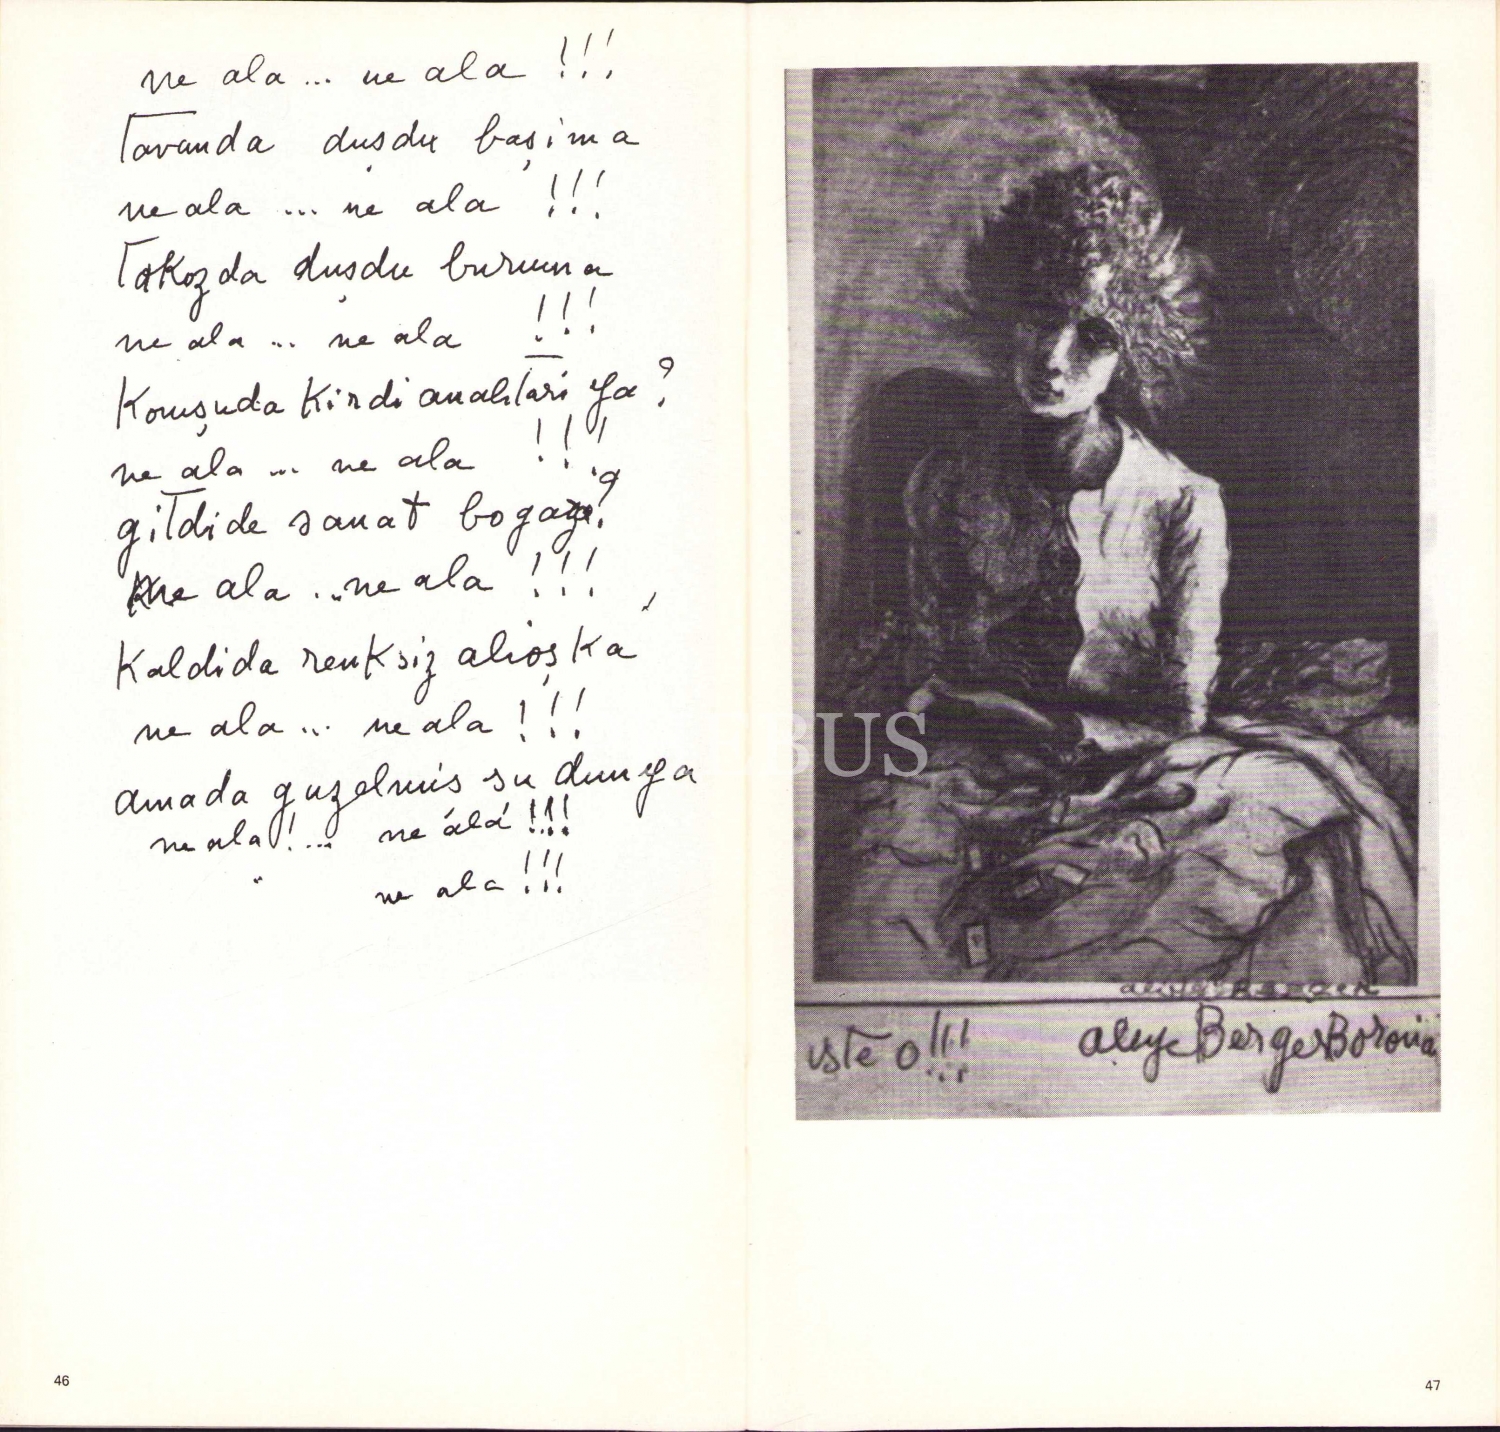 ne ala ... ne ala !!!
Tavanda duşdu başima
ne ala ... ne ala !!!
Takozda duşdu buruma
ne ala ... ne ala !!!
Komşuda Kirdi anahtari ya?
ne ala ... ne ala !!!
gitdide sanat bogaza?
ne ala ... ne ala !!!
Kaldida renksiz alioşKa
ne ala ... ne ala !!!
amada guzelmis su dunya
ne ala! ... ne álá !!!!
ne ala !!!
46
BUS
aliye BERGER
iste o!!!
aliye Berger Boronai
47